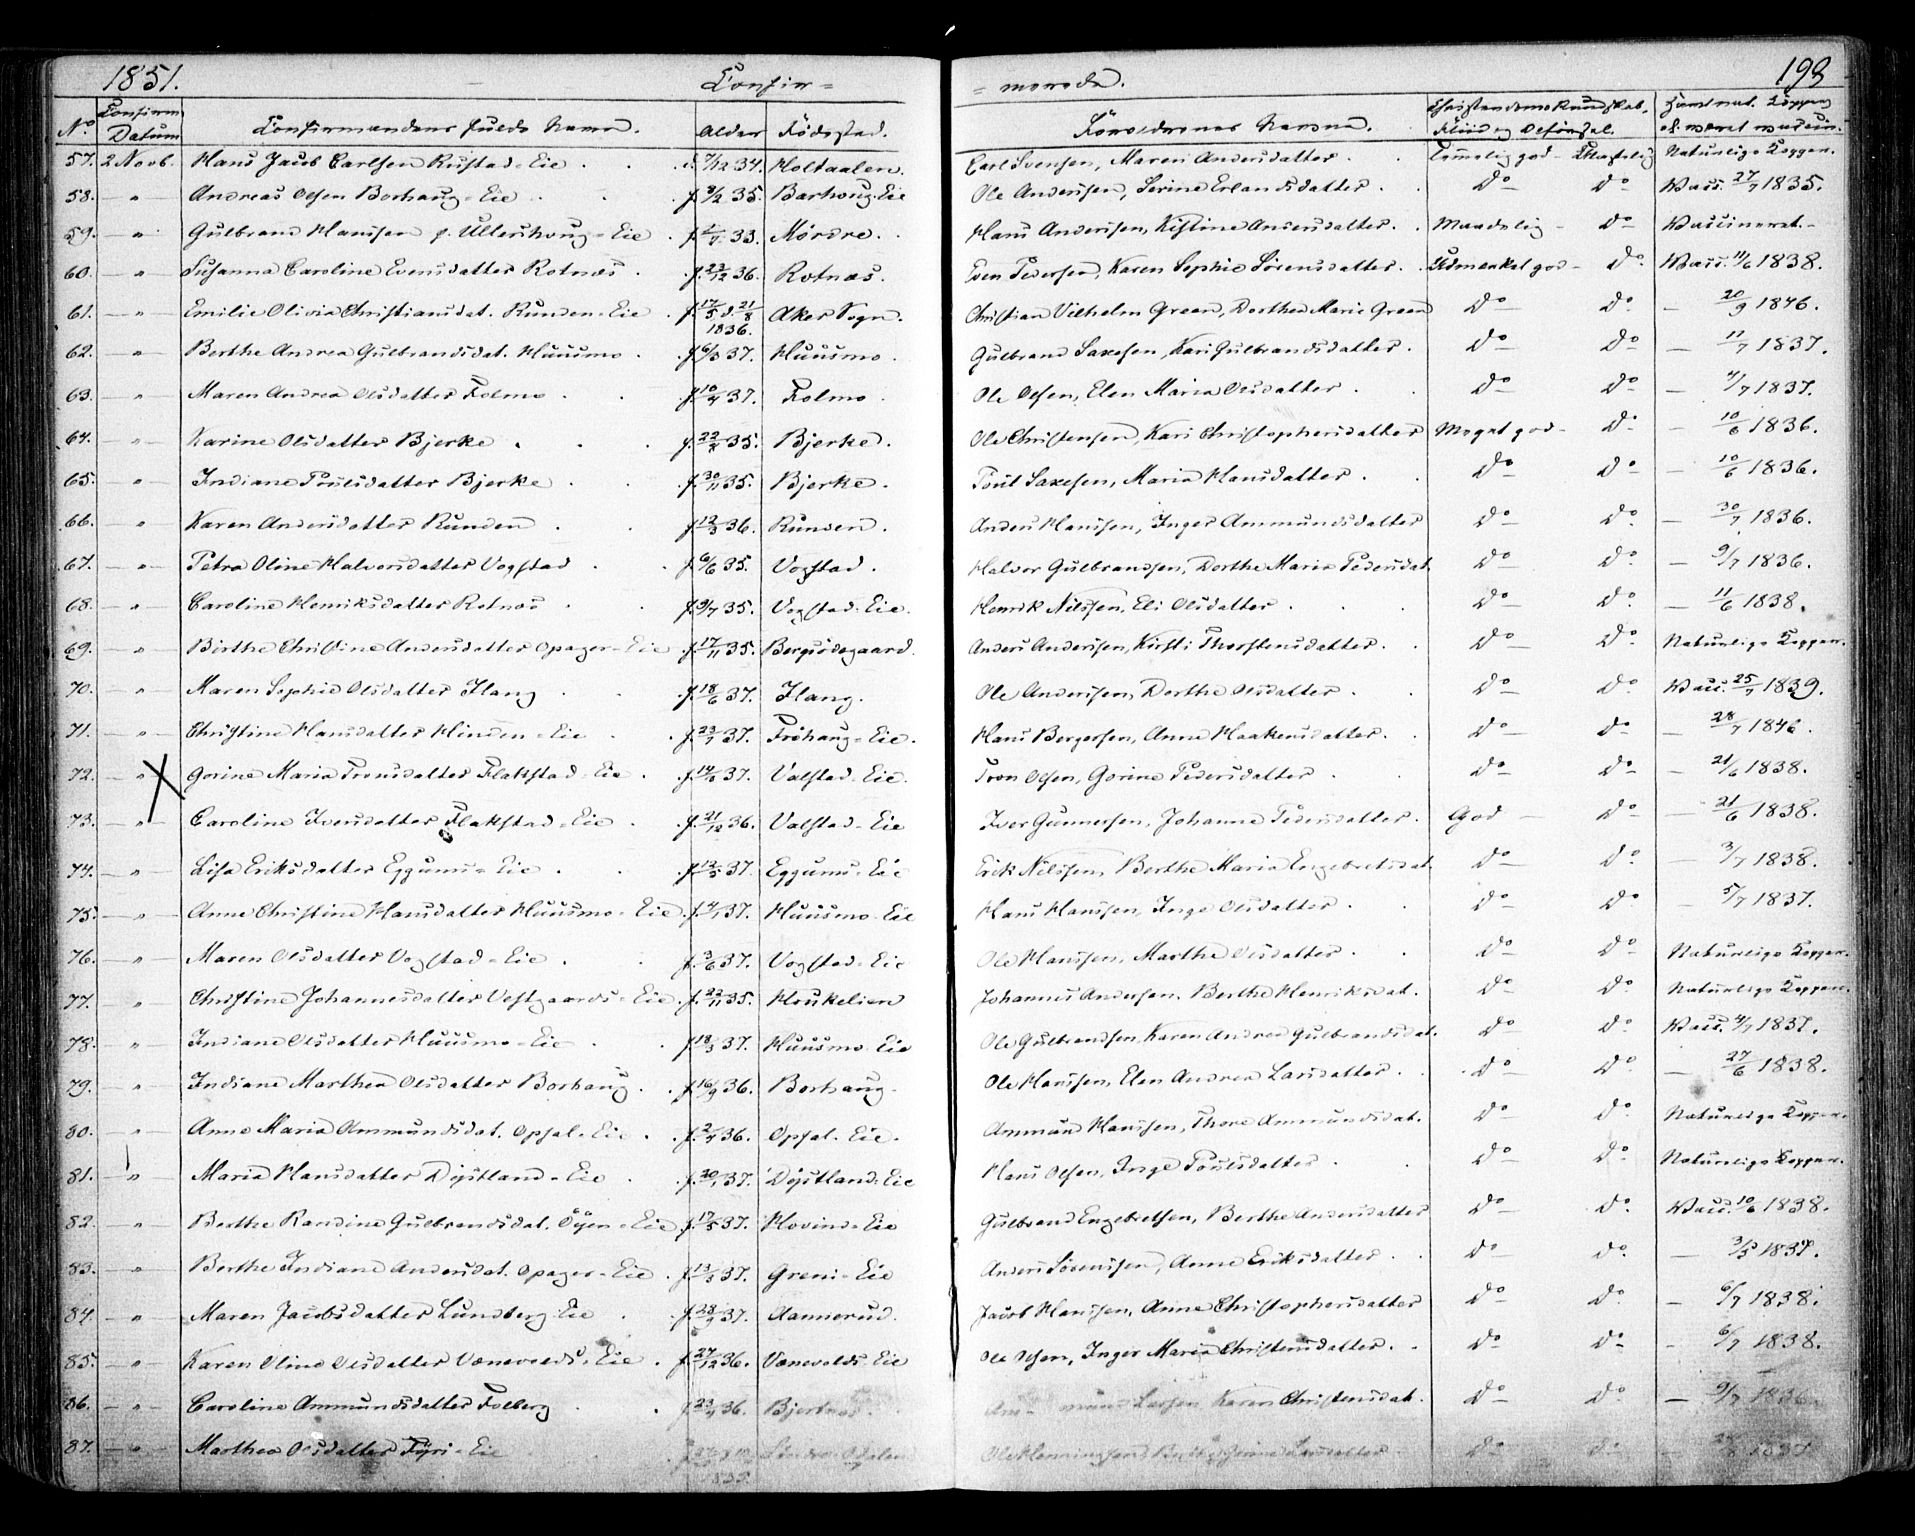 1851. Confir= =merede. 193
No Confirm. Datum Confirmandens fulde Navn. Alder Fødested. Forældrenes Navne. Christendomskundskab, Flid og Opførsel. Havt nat. Kopper el. været vaccin.
57. 2 Novb. Hans Jacob Carlsen Rustad-Eie d. 7/12 34. Holtaalen. Carl Svensen, Maren Andersdatter Temmelig god - Skikkelig Naturlige Kopper.
58. " Andreas Olsen Borhaug-Eie f. 3/2 35. Barhoug-Eie Ole Andersen, Serine Erlandsdatter Do Do Vacc. 27/7 1835.
59. " Gulbrand Hansen p. Ullershoug-Eie Mørdre. Hans Andersen, Kistine Andersdatter Maadelig Do Vaccineret.
60. " Susanna Caroline Evensdatter Rotnæs f. 23/12 36. Rotnæs. Even Pedersen, Karen Sophie Sørensdatter Udmærket god Do Vacc. 11/6 1838.
61. " Emilie Olivia Christiansdat. Runden-Eie f. 17/5 d. 21/8 1836. Aker Sogn. Christian Vilhelm Green, Dorthea Marie Green Do Do 20/9 1846.
62. " Berthe Andrea Gulbrandsdat. Huusmo f. 6/3 37. Huusmo. Gulbrand Saxesen, Kari Gulbrandsdatter Do Do 11/7 1837.
63. " Maren Andrea Olsdatter Folmo f. 10/4 37. Folmo. Ole Olsen, Elen Maria Olsdatter Do Do 4/7 1837.
64. " Karine Olsdatter Bjerke Bjerke. Ole Christensen, Kari Christophersdatter Meget god Do 10/6 1836.
65. " Indiane Poulsdatter Bjerke f. 30/11 35. Bjerke. Poul Saxesen, Maria Hansdatter Do Do 10/6 1836.
66. " Karen Andersdatter Runden f. 12/3 36. Runden. Anders Hansen, Inger Ammundsdatter Do Do 30/7 1836.
67. " Petra Oline Halvorsdatter Vogstad f. 6/6 35. Vogstad. Halvor Gulbrandsen, Dorthe Maria Pedersdat. Do Do 9/7 1836.
68. " Caroline Henriksdatter Rotnæs f. 9/7 35. Vogstad-Eie. Henrik Nilssen, Eli Olsdatter Do Do 11/6 1838.
69. " Birthe Christine Andersdatter Opager-Eie f. 17/11 35. Bergsødegaard. Anders Andersen, Kirsti Thorstensdatter Do Do Naturlige Kopper.
70. " Maren Sophie Olsdatter Ilang f. 18/6 37. Ilang. Ole Andersen, Dorthe Olsdatter Do Do Vacc. 25/7 1839.
71. " Christine Hansdatter Hinden-Eie f. 23/7 37. Frøhaug-Eie. Hans Bergersen, Anne Haakensdatter Do Do 28/7 1846.
72. " Gorine Maria Tronsdatter Flakstad-Eie f. 14/3 37. Valstad-Eie. Tron Olsen, Gorine Pedersdatter Do Do 21/6 1838.
73. " Caroline Iversdatter Flakstad-Eie f. 21/12 36. Valstad-Eie Iver Gunnersen, Johanne Pedersdatter God Do 21/6 1838.
74. " Lisa Eriksdatter Eggums-Eie f. 12/5 37. Eggums-Eie Erik Nilssen, Berthe Maria Engebretsdat. Do Do 3/7 1838.
75. " Anne Christine Hansdatter Huusmo-Eie f. 4/1 37. Huusmo-Eie Hans Hansen, Inge Olsdatter Do Do 5/7 1837.
76. " Maren Olsdatter Vogstad-Eie f. 3/6 37. Vogstad-Eie Ole Hansen, Marthe Olsdatter Do Do Naturlige Kopper.
77. " Christine Johannesdatter Vestgaards-Eie f. 22/11 35. Houkelien Johannes Andersen, Berthe Henriksdat. Do Do Naturlige Kopper.
78. " Indiane Olsdatter Huusmo-Eie f. 18/3 37. Huusmo-Eie Ole Gulbrandsen, Karen Andrea Gulbrandsdat. Do Do Vacc. 4/7 1837.
79. " Indiane Marthea Olsdatter Borhaug f. 16/9 36. Borhaug Ole Hansen, Elen Andrea Larsdatter Do Do 27/6 1838.
80. " Anne Maria Ammundsdat. Opsal-Eie f. 2/4 36. Opsal-Eie. Ammund Hansen, Thore Ammundsdat. Do Do Naturlige Kopper.
81. " Maria Hansdatter Dystland-Eie f. 20/1 37. Dystland-Eie Hans Olsen, Inge Poulsdatter Do Do Naturlige Kopper.
82. " Berthe Randine Gulbrandsdat. Öyen-Eie f. 17/5 37. Hovind-Eie Gulbrand Engebretsen, Berthe Andersdatter Do Do Vacc. 10/6 1838.
83. " Berthe Indiane Andersdat. Opager-Eie f. 13/3 37. Greni-Eie Anders Sørensen, Anne Eriksdatter Do Do 1837.
84. " Maren Jacobsdatter Lundberg-Eie f. 28/9 37. Aannerud. Jacob Hansen, Anne Christophersdatter Do Do 6/7 1838.
85. " Karen Oline Olsdatter Vænevolds-Eie f. 27/12 36. Vænevolds-Eie Ole Olsen, Inger Maria Christensdatter Do Do 6/7 1838.
86. " Caroline Ammundsdatter Folberg f. 23/4 36. Bjertnæs. Ammund Larsen Karen Christensdat. Do Do 9/7 1836.
87. " Marthea Olsdatter Fyri-Eie Søndre Odalen Ole Henningsen Do Do